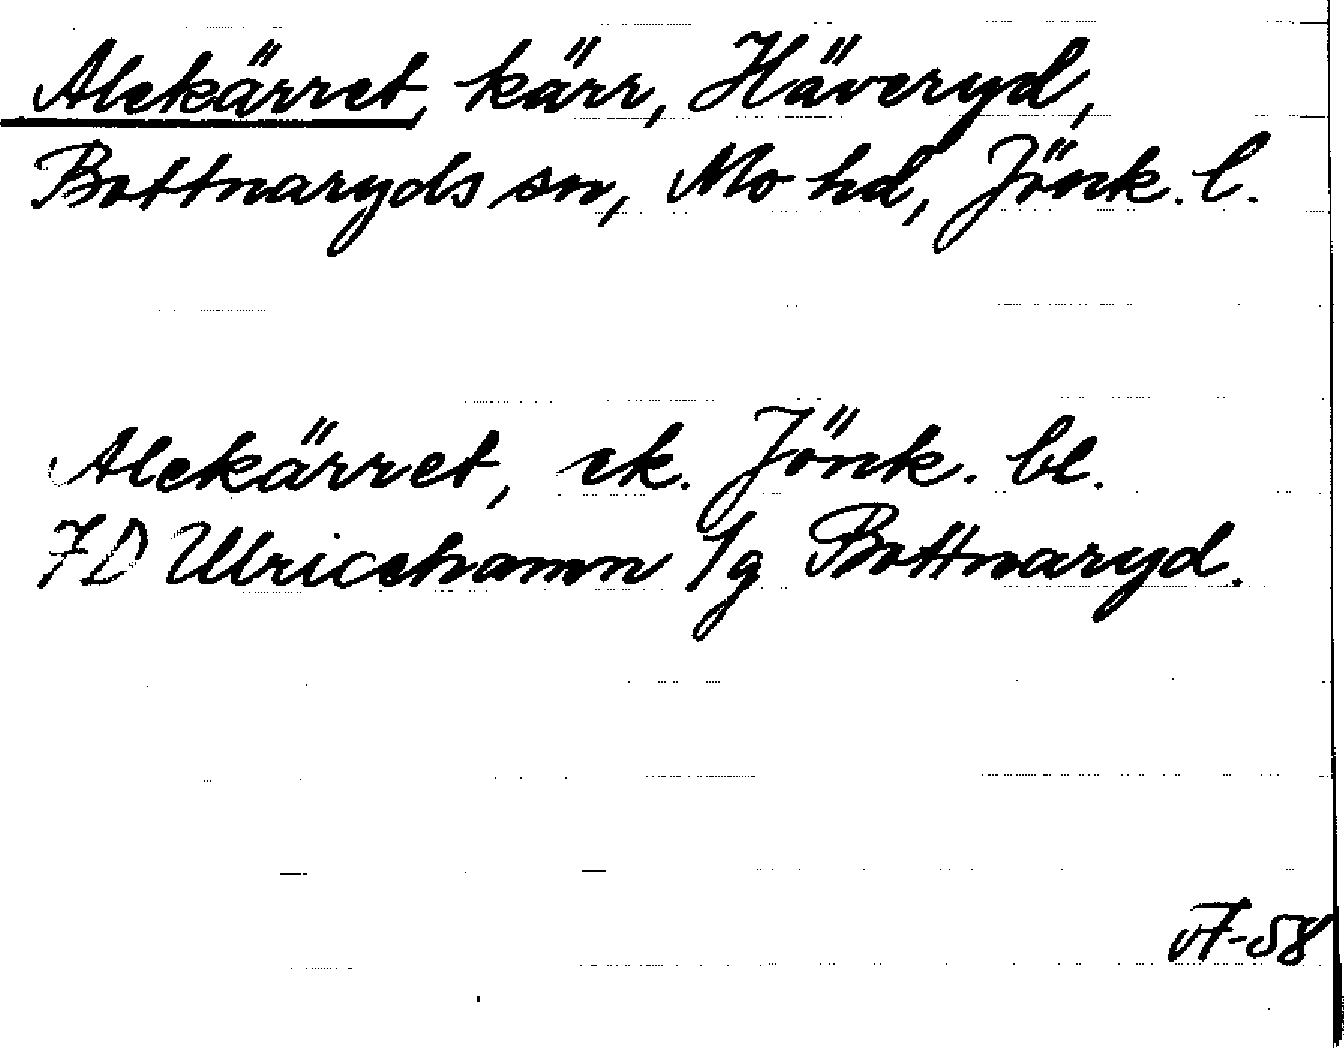 Alekärret, kärr, Häveryd,
Bottnaryds sn, Mo hd, Jönk. l.
Alekärret, ek. Jönk. bl.
7D Ulricehamn /g Bottnaryd.
VF-58